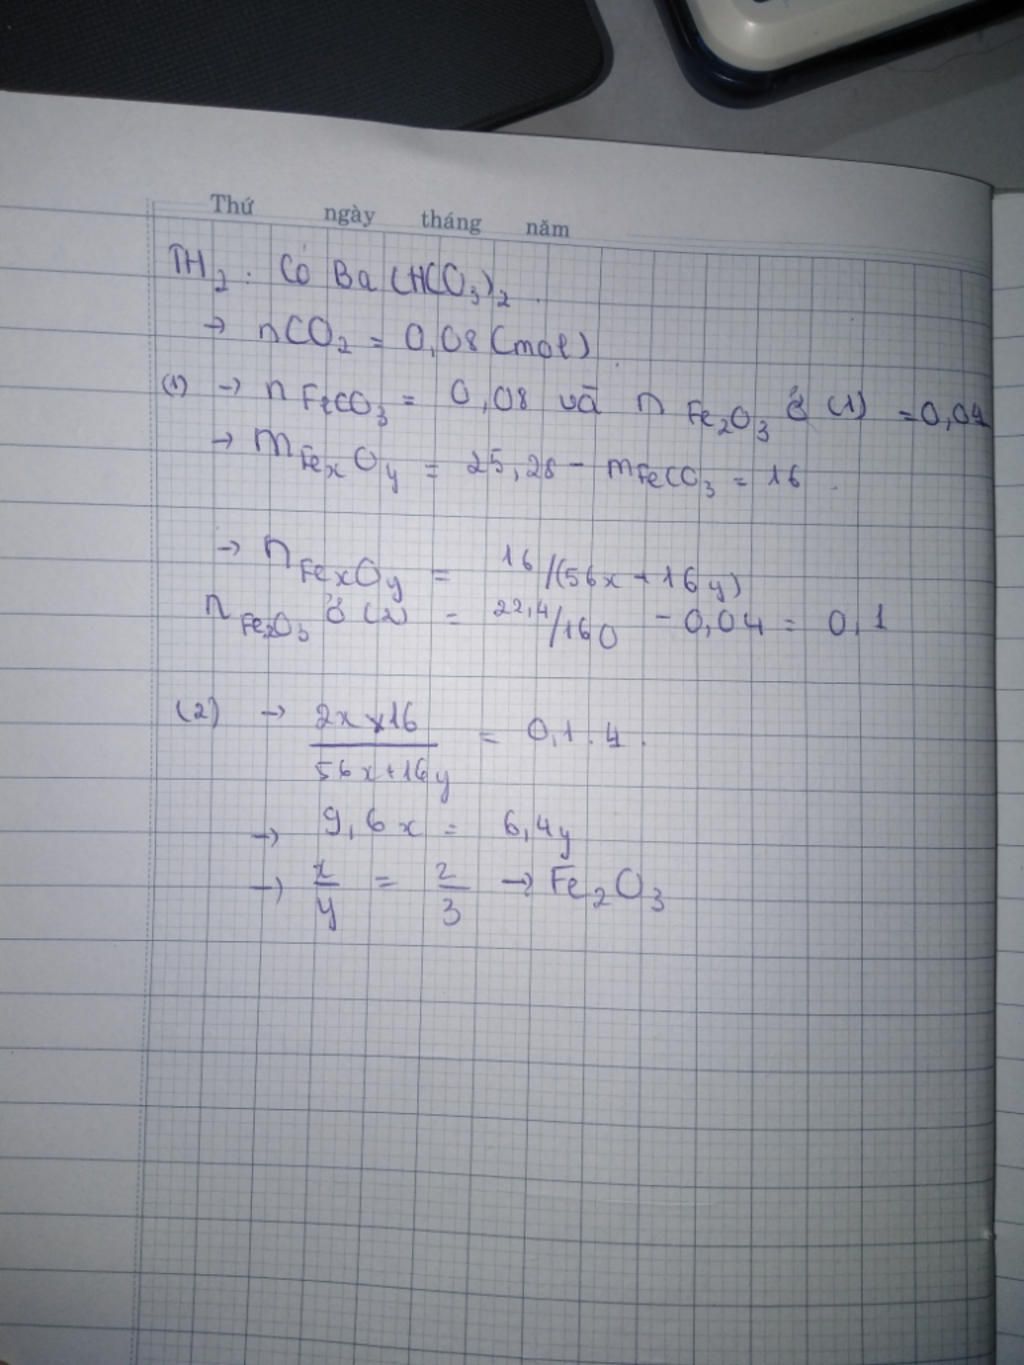 Thứ ngày tháng năm
TH2: Có Ba(HCO3)2.
→ nCO2 = 0,08 (mol)
(1) → n FeCO3 = 0,08 và n Fe2O3 ở (1) = 0,04
→ m FexOy = 25,28 - mFeCO3 = 16.
→ n FexOy = 16/(56x + 16y)
n Fe2O3 ở (2) = 22,4/160 - 0,04 = 0,1
(2) → 2x x 16 / 56x+16y = 0,1.4.
→ 9,6x = 6,4y
→ x/y = 2/3 → Fe2O3